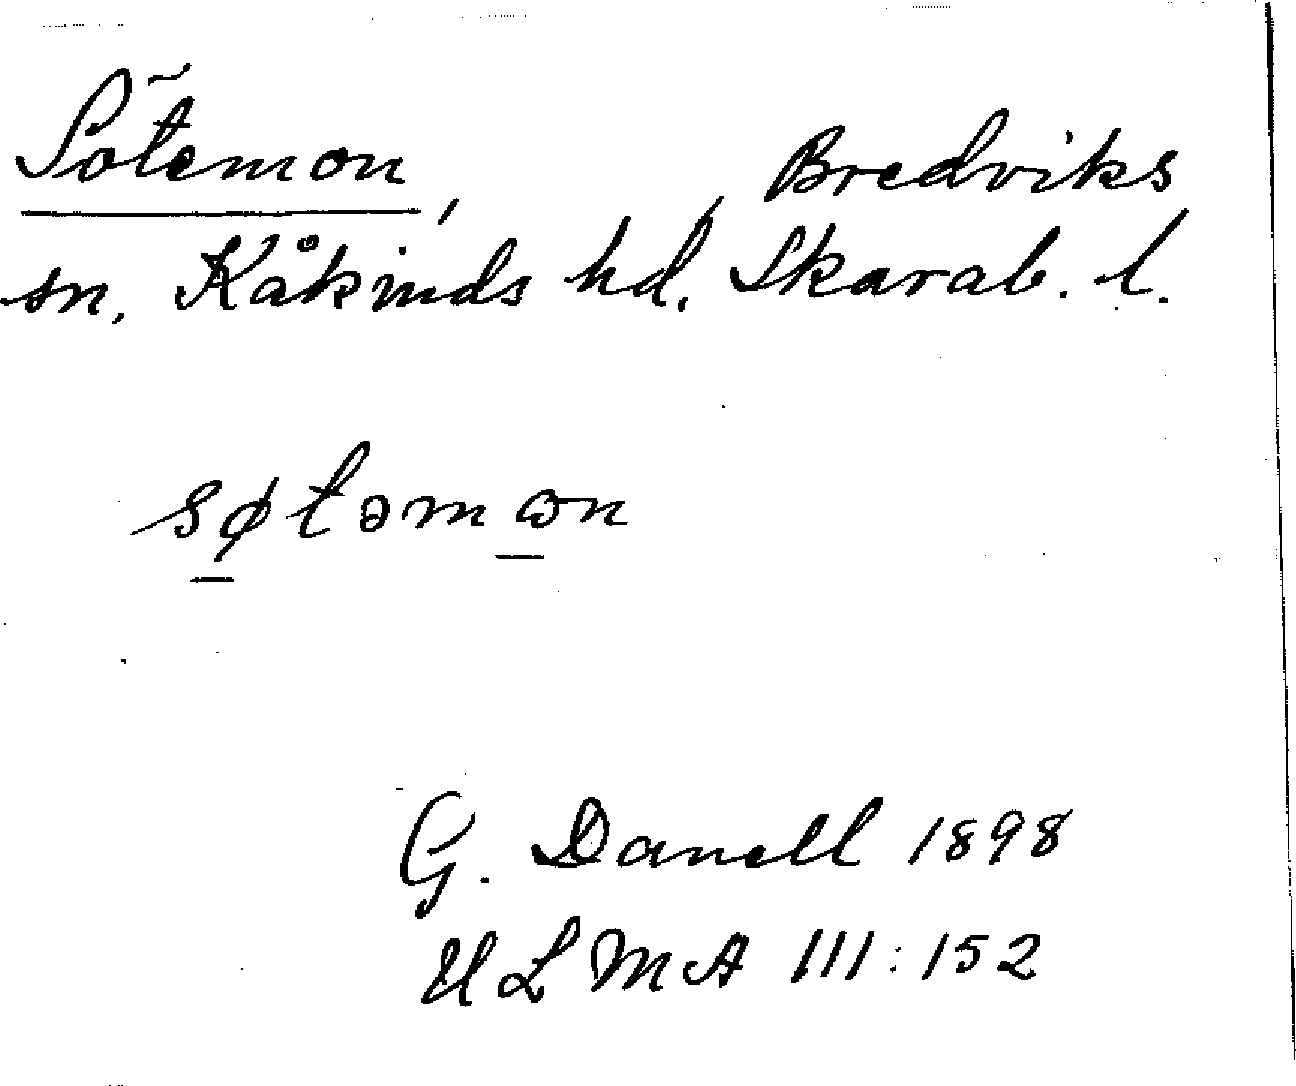 Sötemon, Bredviks
sn. Kåkinds hd. Skarab. l.
søtəmɷn
G. Danell 1898
ULMA 111:152